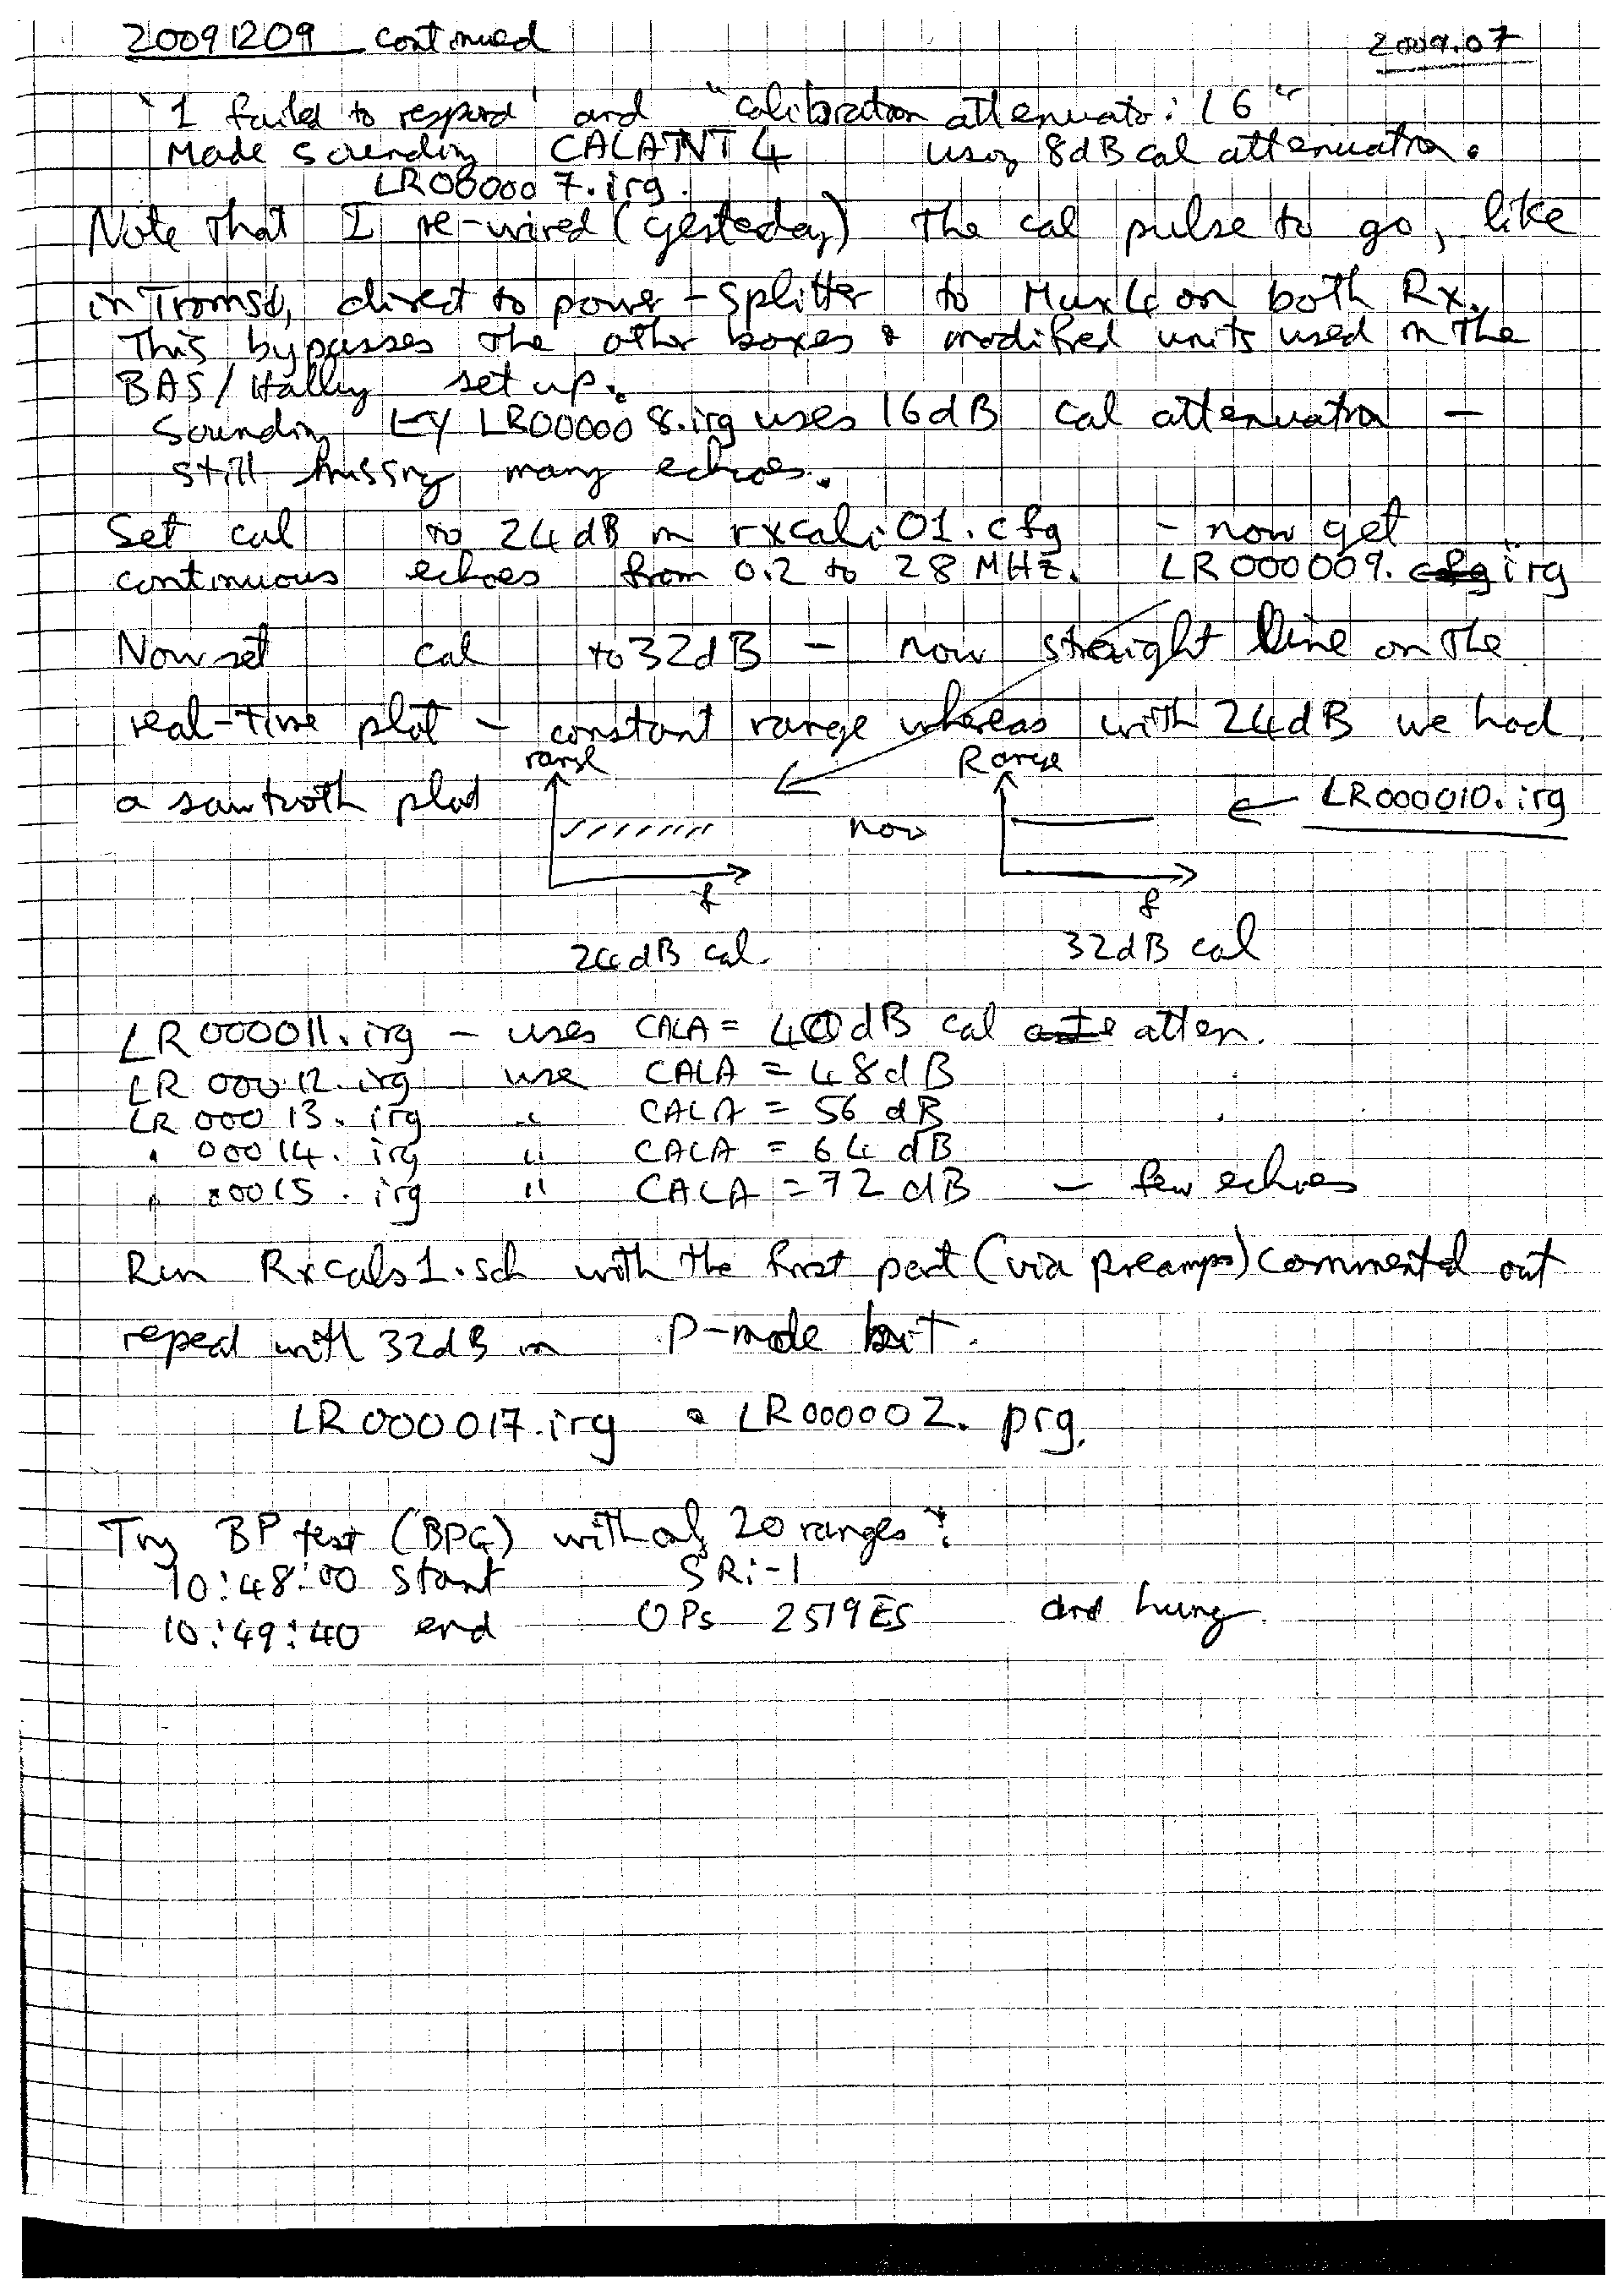 20091209 continued
2009.07
"1 failed to respond" and "calibration attenuator: 16"
Made sounding CALATNT4 using 8dB cal attenuation.
LR000007.irg.
Note that I re-wired (yesteday) the cal pulse to go, like
in Tromsø, direct to power-splitter to Mux4 on both Rx.
This bypasses the other boxes & modified units used in the
BAS/Halley set up.
Sounding LR000008.irg uses 16dB cal attenuation –
still missing many echoes.
Set cal to 24dB in rxcali01.cfg – now get
continuous echoes from 0.2 to 28 MHz. LR000009. cfg irg
Now set cal to 32dB – now straight line on the
real-time plot – constant range whereas with 24dB we had
a sawtooth plot
range
Range
now
← LR000010.irg
f
f
24dB cal.
32dB cal
LR000011.irg – uses CALA = 40dB cal atten.
LR 00012.irg use CALA = 48dB
LR 00013.irg " CALA = 56 dB
" 00014.irg " CALA = 64 dB
" 00015.irg " CALA = 72 dB – few echoes
Run Rxcals1.sch with the first part (via preamps) commented out
repeat with 32dB in P-mode bit.
LR000017.irg & LR000002.prg.
Try BP test (BPG) with only 20 ranges:
10:48:00 start SRi-1
10:49:40 end OPs 2519ES and hung.